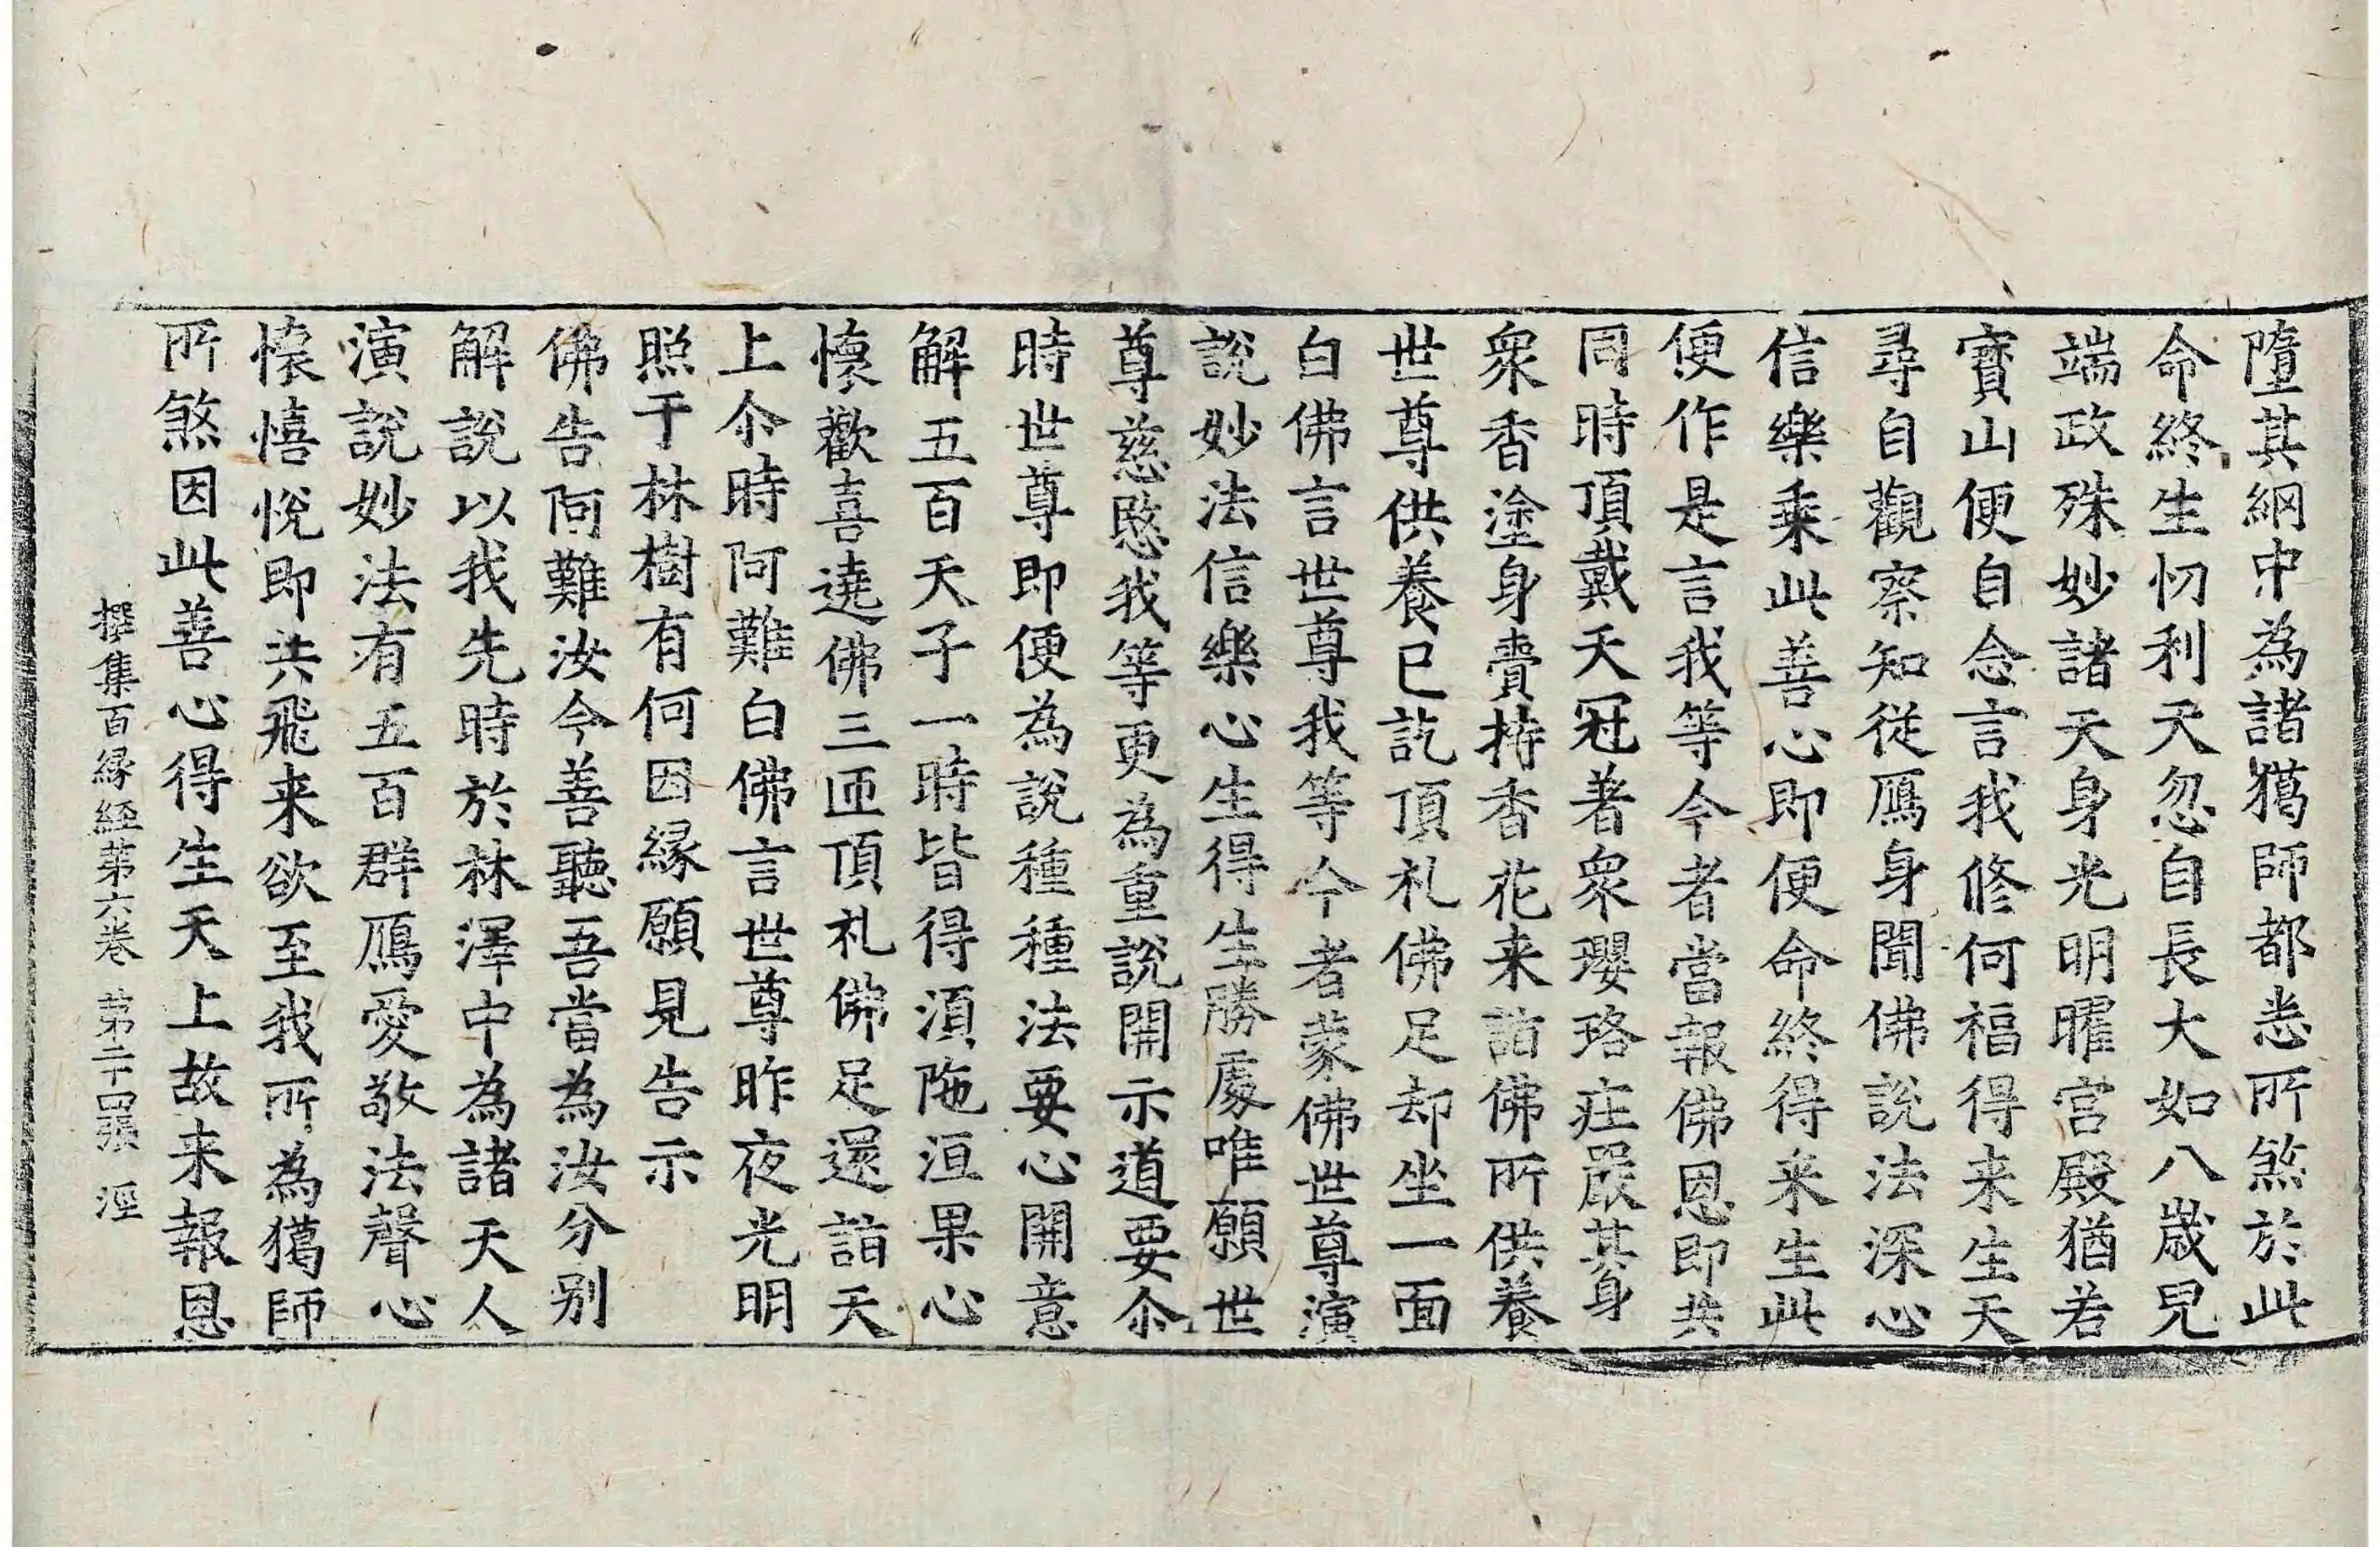 墮其網中為諸獦師都悉所煞於此
命終生忉利天忽自長大如八歲兒
端政殊妙諸天身光明曜宮殿猶若
寶山便自念言我修何福得来生天
尋自觀察知従鴈身聞佛說法深心
信樂乘此善心即便命終得来生此
便作是言我等今者當報佛恩即共
同時頂戴天冠著衆瓔珞庄嚴其身
衆香塗身賷持香花来詣佛所供養
世尊供養已訖頂礼佛足却坐一面
白佛言世尊我等今者蒙佛世尊演
說妙法信樂心生得生勝處唯願世
尊慈愍我等更為重說開示道要尒
時世尊即便為說種種法要心開意
解五百天子一時皆得湏陁洹果心
懷歡喜遶佛三匝頂礼佛足還詣天
上尒時阿難白佛言世尊昨夜光明
照于林樹有何因縁願見告示
佛告阿難汝今善聽吾當為汝分别
解說以我先時於林澤中為諸天人
演說妙法有五百群鴈愛敬法聲心
懷憘悅即共飛来欲至我所為獦師
所煞因此善心得生天上故来報恩
撰集百縁経第六卷 第二十四張 涇